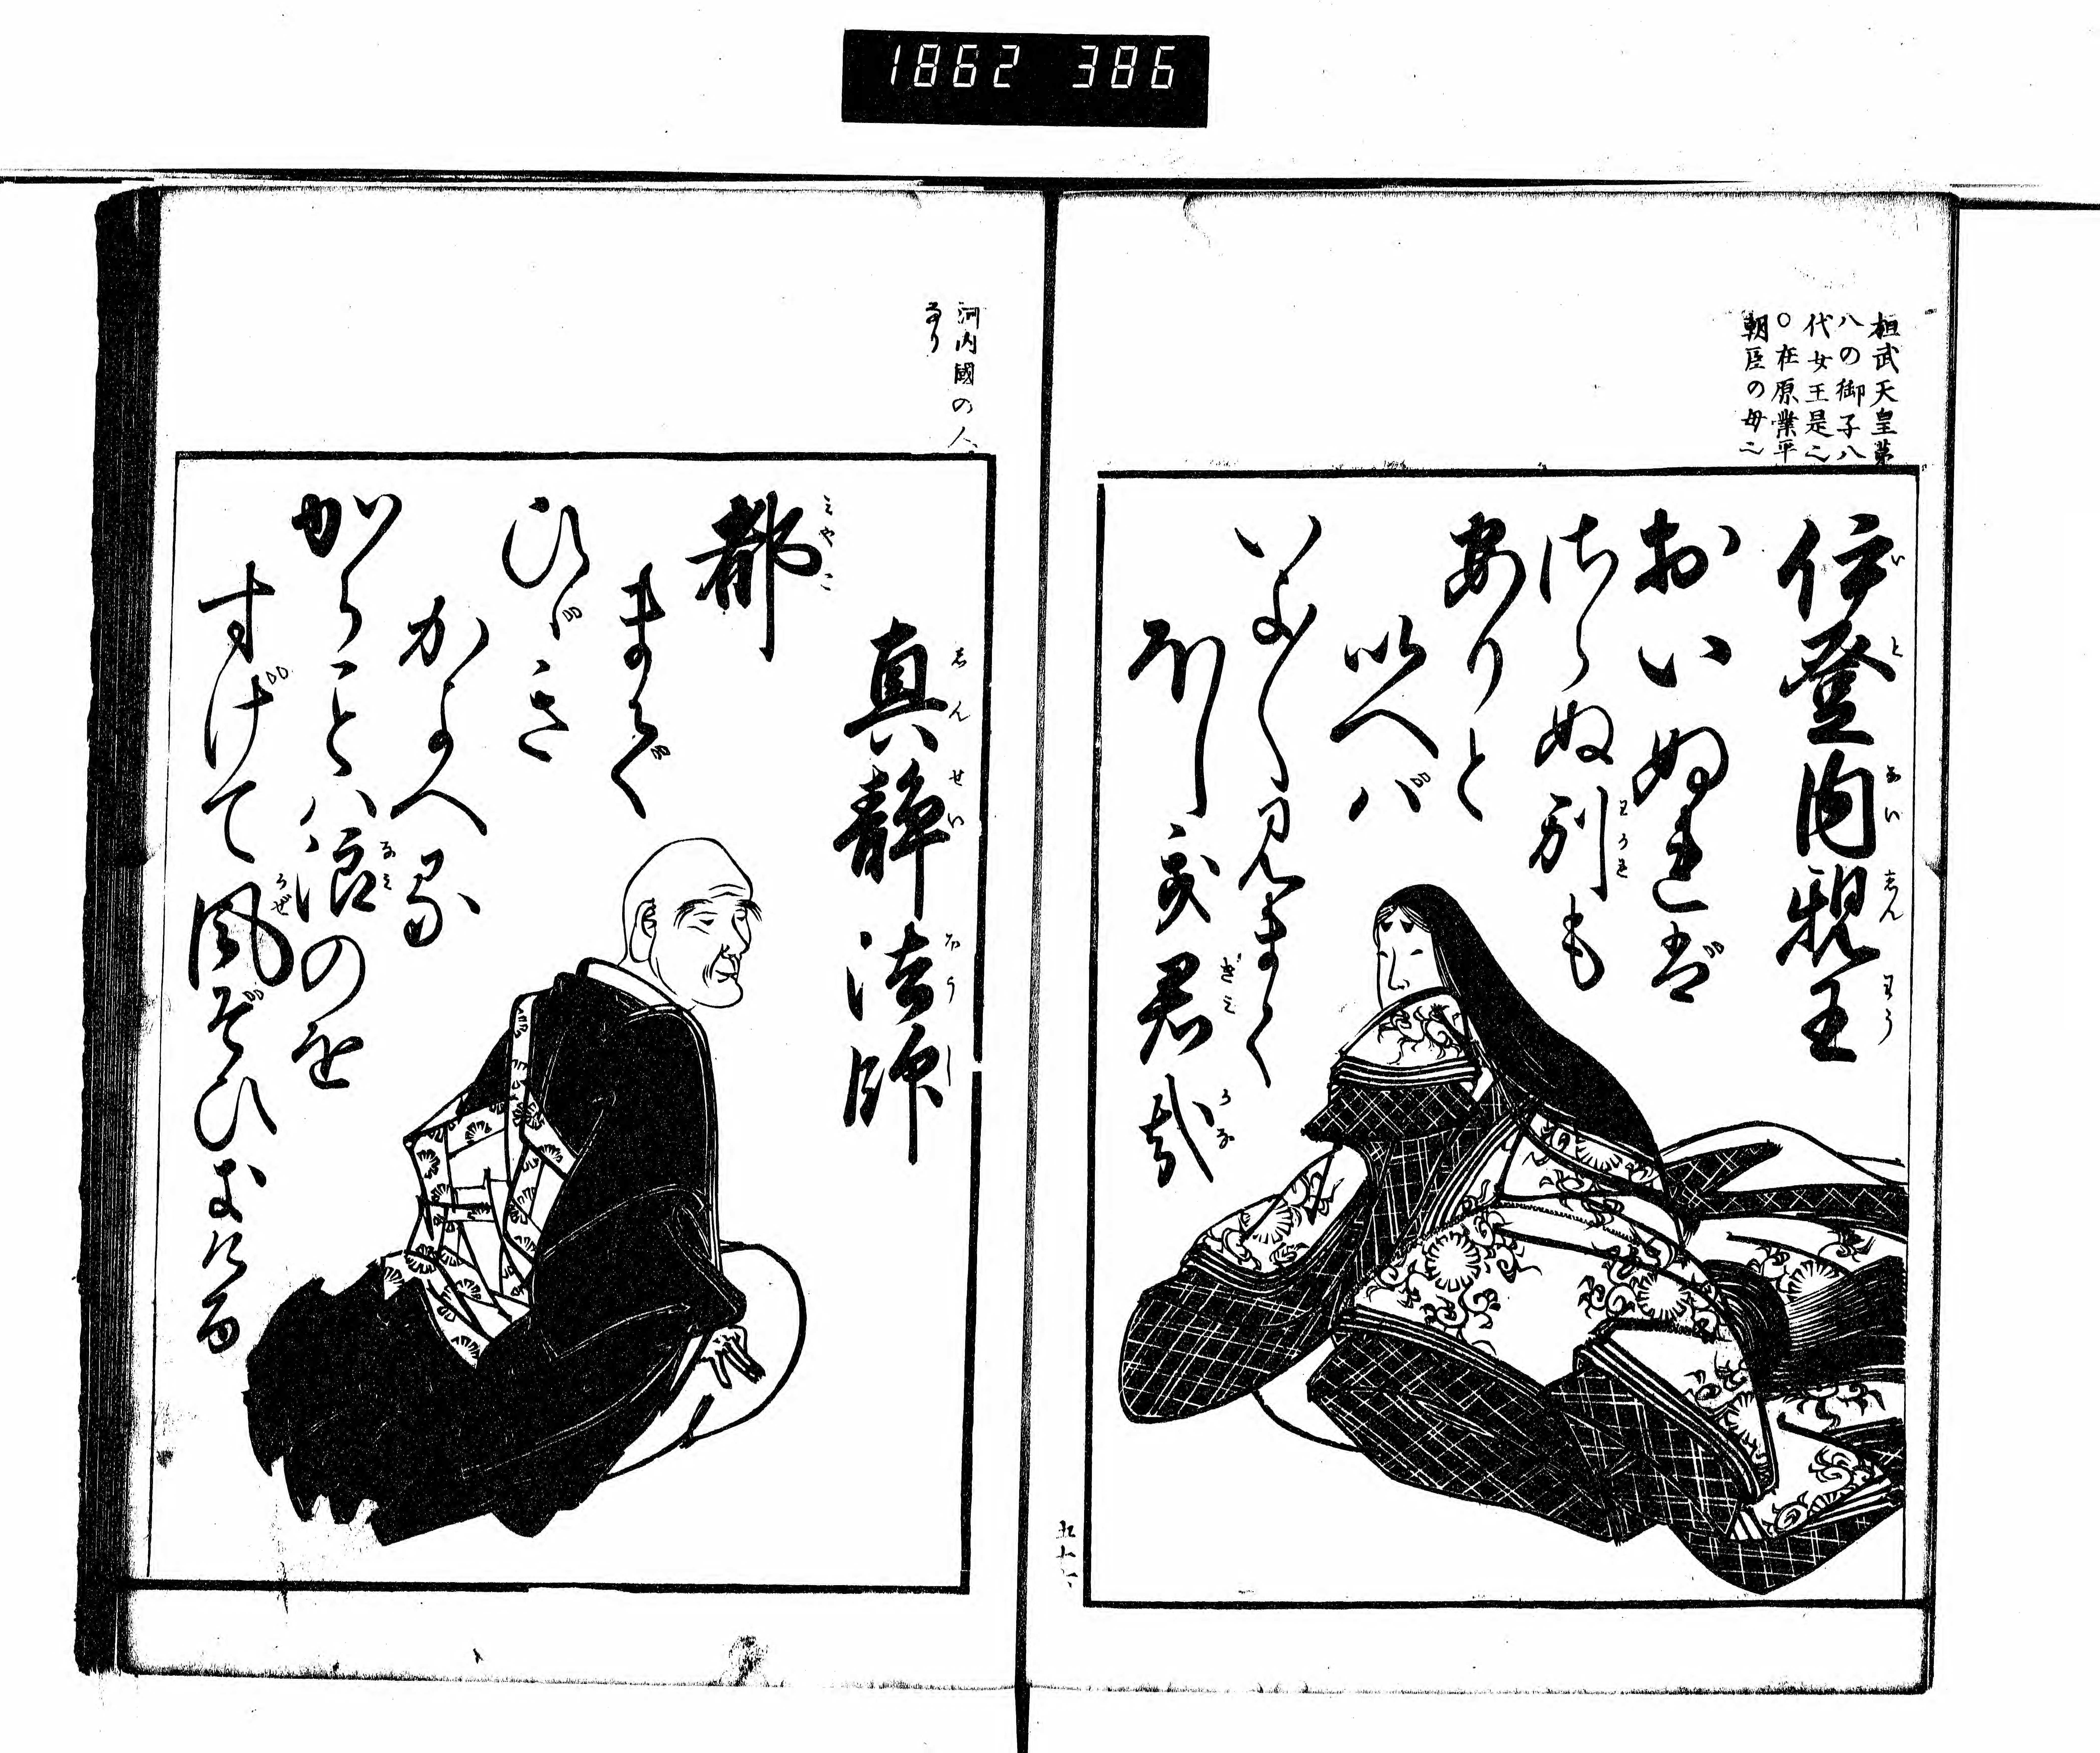 1862 386
桓武天皇第
八の御子八
代女王是也
○在原業平
朝臣の母也
伊登内親王
おいぬれば
さらぬ別も
ありと
いへバ
いよ〳〵見まく
ほしき君哉
五十六
河内國の人
なり
真静法師
都
までも
ひゞき
かよへる
からことハ
浪のを
すげて風ぞひきける